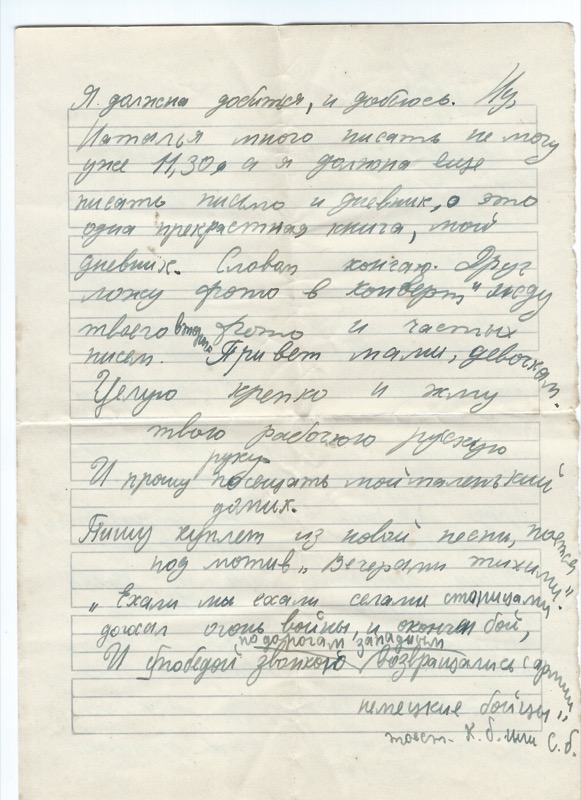 Я должна добится, и добьюсь. Ну,
Наталья много писать не могу
уже 11,30, а я должна еще
писать письмо и дневник, а это
одна прекрастная книга, мой
дневник. Слован кончаю. Друг
ложу фото в конверт, жду
твоего фото и частых
писем. Привет мами, девочкам.
Целую крепко и жму
твою рабочую русскую
руку.
И прошу посещать мой маленький
домик.
Пишу куплет из новой песни, поется
под мотив „Вечерами тихими."
„Ехали мы ехали селами станицами
дожал огонь войны, и окончен бой,
по дорогам западным
И с победой звонкою возвращались с армии
немецкие бойцы"
тоест. К.б. или С.б.